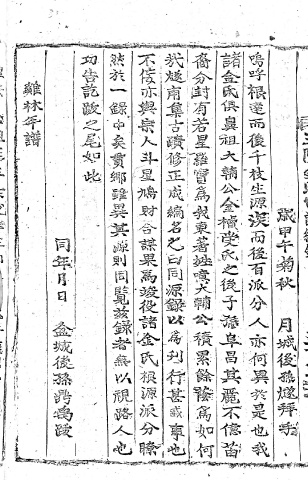 歲甲午菊秋 月城後孫燧拜
嗚呼根遠而後千枝生源深而後百派分人亦何異於是也我
諸金氏俱鼻祖大輔公金樻受氏之後子落阜昌其麗不億苗
裔分封有若星羅實爲我東著姓噫大輔公積累餘發爲如何
哉燧甫集古蹟修正成編名之曰同源錄以爲刊行甚盛事也
不侫亦與宗人斗星鳩財合謀果爲竣役諸金氏根源派分瞭
然於一錄中矣貫鄕雖異其源則同覽玆錄者無以視路人也
功告訖跋之尾如此
同年月日 金城後孫鼎禹跋
雞林年譜